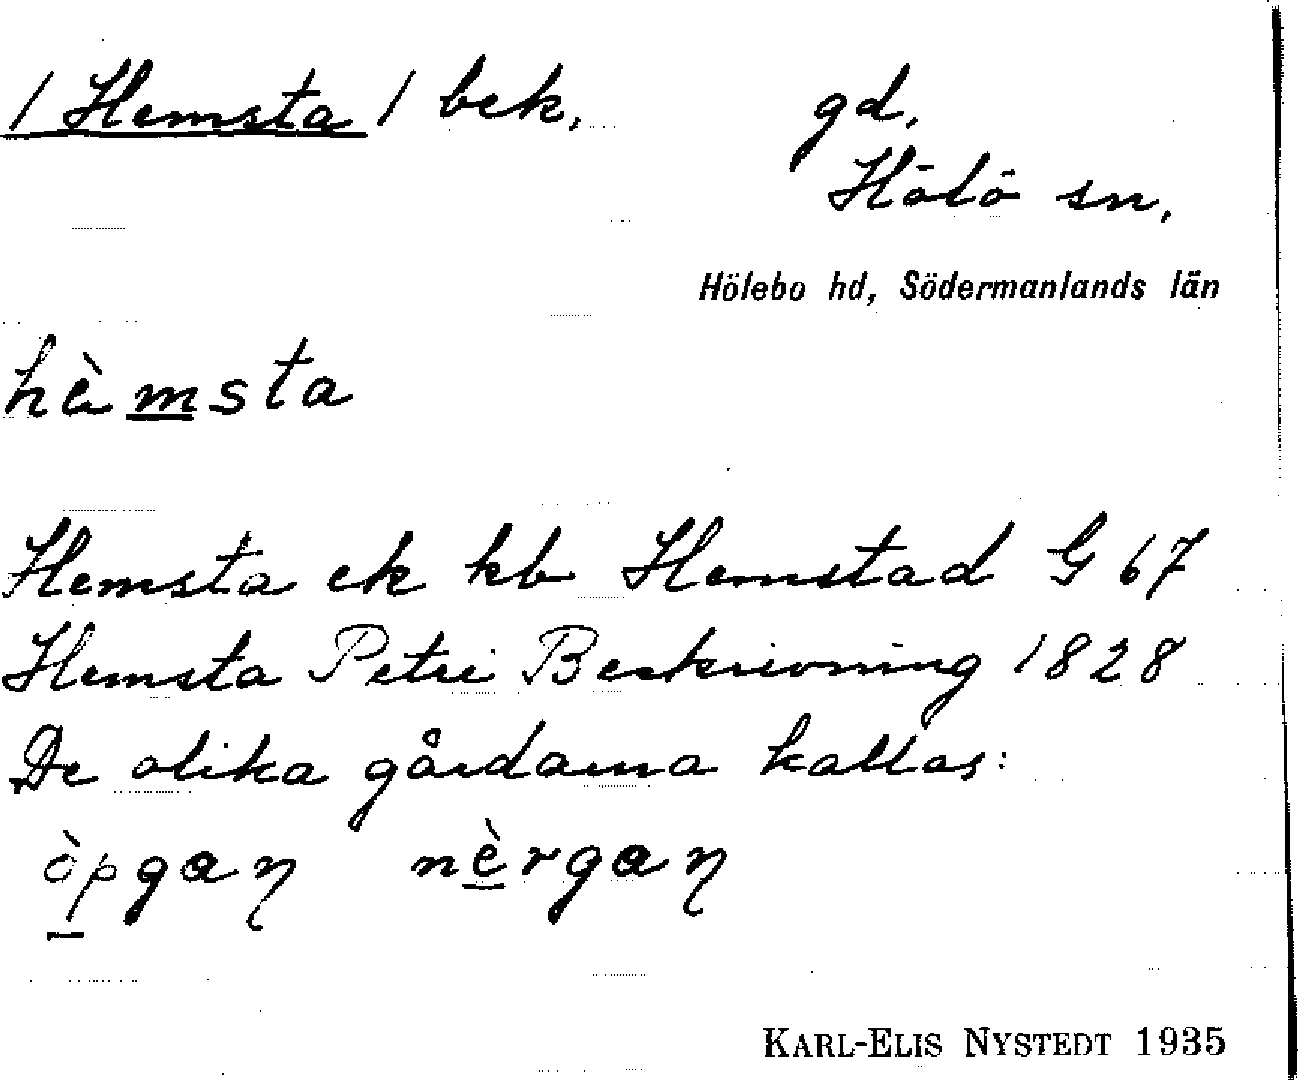 / Hemsta / bek. gd.
Hölö sn.
Hölebo hd, Södermanlands län
hèmsta
Hemsta ek kb Hemstad G 67
Hemsta Petri Beskrivning 1828
De olika gårdarna kallas:
òpgaɳ nèrgaɳ
KARL-ELIS NYSTEDT 1935